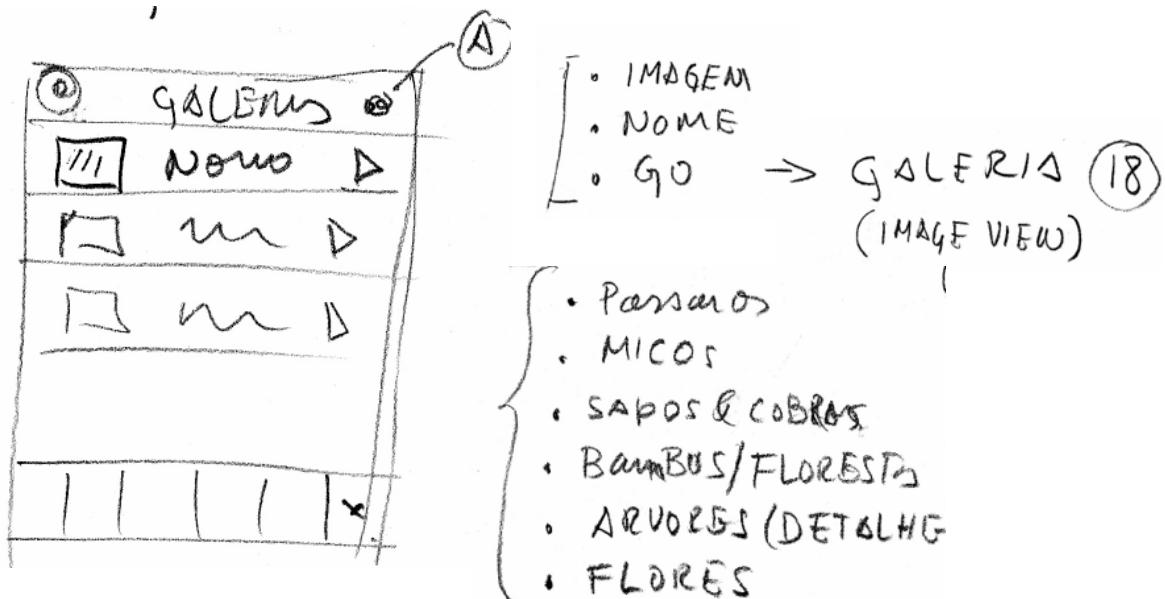 A
GALERIA
NOME
• IMAGEM
• NOME
• GO → GALERIA 18
(IMAGE VIEW)
• Passaros
• MICOS
• SAPOS & COBRAS
• BamBUS/FLORESTA
• ARVORES (DETALHE
• FLORES